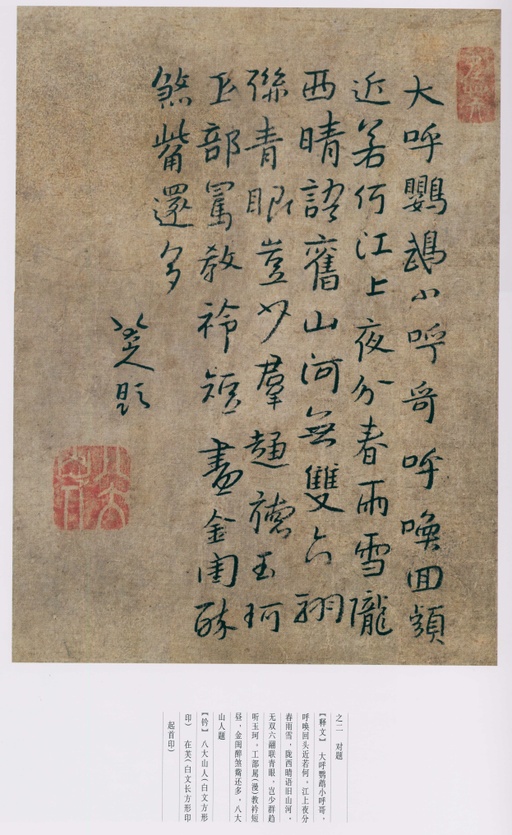 大呼鸚鵡小呼哥呼喚回頭
近若何江上夜分春雨雪隴
西晴語舊山河無雙六翮
聯青眼豈少羣趨聽玉珂
工部教衿短晝金閨醉
煞觜還多
八大山人題
之二 对题
【释文】 大呼鹦鹉小呼哥，
呼唤回头近若何。江上夜分
春雨雪，陇西晴语旧山河。
无双六翮联青眼，岂少群趋
听玉珂。工部(漫)教衿短
昼，金闺醉煞觜还多。八大
山人题
【钤】 八大山人(白文方形
印) 在芙(白文长方形印
起首印)